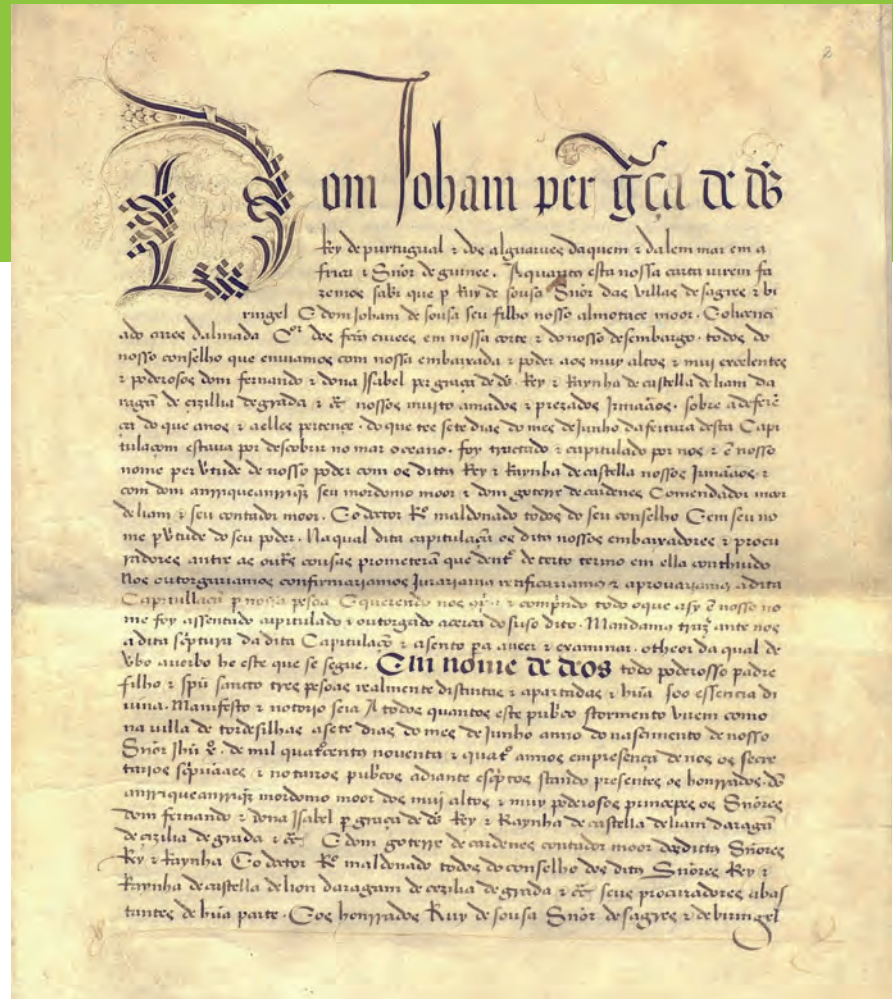 2
Dom Joham per gͣça de ds̃
Rey de purtugual ⁊ dos alguarues daquem ⁊ dalem mar em a
frica ⁊ Sñor de guinee. A quantos esta nossa carta virem fa
zemos saber que p Ruy de sousa Sñor das villas de sagres ⁊ bi
ringel E dom Joham de sousa seu filho nosso almotace moor. E o licenci
ado aires dalmada dos feitos ciuees em nossa corte ⁊ do nosso desembargo. todos do
nosso conselho que enuiamos com nossa embaixada ⁊ poder aos muy altos ⁊ mui excelentes
⁊ poderosos dom fernando ⁊ dona Isabel per graça de ds̃ Rey ⁊ Raynha de castella de liam da
ragã de cizillia de grada ⁊ ⁊c̃ nossos muito amados ⁊ prezados Irmãaos. sobre a deferẽ
ça do que a nos ⁊ a elles pertençe. do que tee sete dias do mes de Junho da feitura desta Capi
tulaçom estaua por descobrir no mar oceano. foy tractado ⁊ capitulado por nos ⁊ ẽ nosso
nome per ṽtude de nosso poder com os dittos Rey ⁊ Raynha de castella nossos Irmãaos. ⁊
com dom anrrique anrriq̃z seu mordomo moor ⁊ dom goterre de cardenes Comendador moor
de liam ⁊ seu contador moor. E o doctor Rº maldonado todos do seu conselho E em seu no
me p ṽtude do seu poder. Na qual dita capitulaçã os ditos nossos embaixadores ⁊ procu
radores antre as outras cousas prometerã que dentº de certo termo em ella conthiudo
Nos outorguariamos confirmariamos Jurariamos retificariamos ⁊ aprouariamos a dita
Capitullaçã p nossa pesoa E querendo nos ⁊ comprindo todo o que asy ẽ nosso no
me foy assentado capitulado ⁊ outorgado acerca do suso dito. Mandamos trazer ante nos
a dita sc̃ptura da dita Capitulaçõ ⁊ asento pa a veer ⁊ examinar. o theor da qual de
ṽbo a verbo he este que se segue. Em nome de deos todo poderosso padre
filho ⁊ spũ sancto tres pesoas realmente distintas ⁊ apartadas ⁊ hũa soo essencia di
uina. Manifesto ⁊ notorio seia A todos quantos este pubº stormento virem como
na villa de tordesilhas a sete dias do mes de Junho anno do nascimento de nosso
Sñor Jhũ x̃º. de mil quatºcentos nouenta ⁊ quatº annos em presença de nos os secre
tarios sc̃puãaes ⁊ notairos pubº̃cos adiante esc̃ptos stando presentes os honrrados. dõ
anrrique anrriq̃z mordomo moor dos mui altos ⁊ muy poderosos principes os Sñores
dom fernando ⁊ dona Isabel p graça de ds̃ Rey ⁊ Raynha de castella de liam daragã
de cizilia de grada ⁊ ⁊c̃ E dom goterre de cardenes contador moor dos dictos Sñores
Rey ⁊ Raynha E o doctor Rº maldonado todos do conselho dos ditos Sñores Rey ⁊
Raynha de castella de lion daragam de cezilia de grada ⁊ ⁊c̃ seus procuradores abas
tantes de hũa parte. E os honrrados Ruy de sousa Sñor de sagres ⁊ de biringel